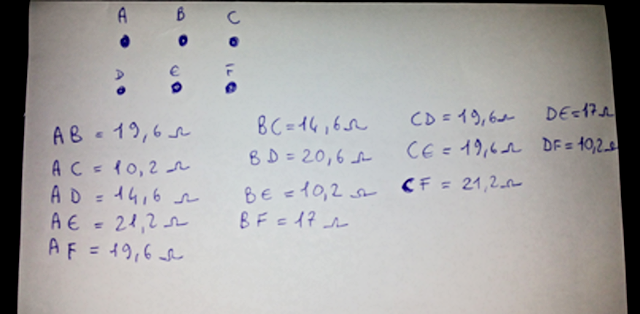 A B C
D E F
AB = 19,6 Ω
AC = 10,2 Ω
AD = 14,6 Ω
AE = 21,2 Ω
AF = 19,6 Ω
BC = 14,6 Ω
BD = 20,6 Ω
BE = 10,2 Ω
BF = 17 Ω
CD = 19,6 Ω
CE = 19,6 Ω
CF = 21,2 Ω
DE = 17 Ω
DF = 10,2 Ω